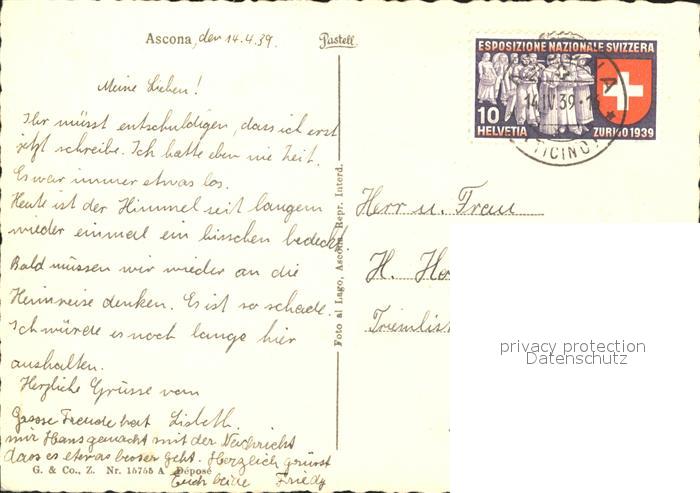 Ascona, den 14.4.39.
Pastell
Meine Lieben!
Ihr müsst entschuldigen, dass ich erst
jetzt schreibe. Ich hatte eben nie Zeit.
Es war immer etwas los.
Heute ist der Himmel seit langem
wieder einmal ein bisschen bedeckt.
Bald müssen wir wieder an die
Heimreise denken. Es ist so schade.
Ich würde es noch lange hier
aushalten.
Herzliche Grüsse von
Lisbeth.
Grosse Freude hat
mir Hans gemacht mit der Nachricht
dass es etwas besser geht. Herzlich grüsst
Euch beide Friedy
G. & Co., Z. Nr. 15755 A Déposé
Foto al Lago, Ascona Repr. Interd.
ESPOSIZIONE NAZIONALE SVIZZERA
10
HELVETIA
ZURIGO 1939
14.IV.39
(TICINO)
Herr u. Frau
H. Ho
Triemlis
privacy protection
Datenschutz